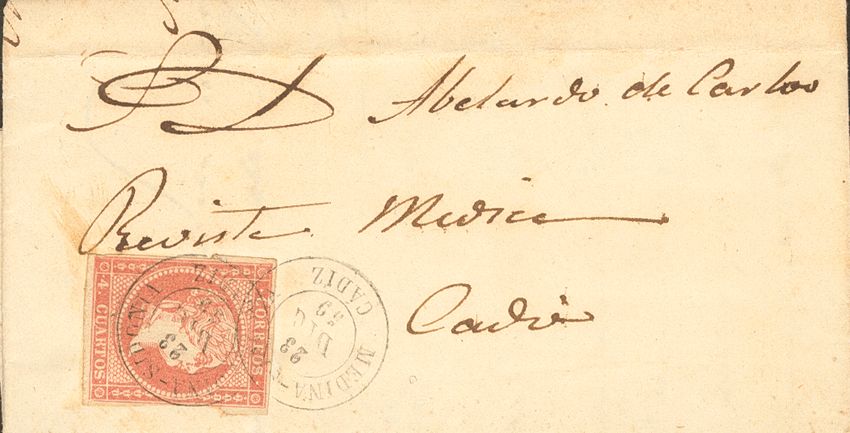 S. D. Abelardo de Carlos
Revista Medica
Cadiz
CORREOS
4 CUARTOS
MEDINA-SIDONIA
23
DIC
59
CADIZ
MEDINA-
23
DIC
59
CADIZ